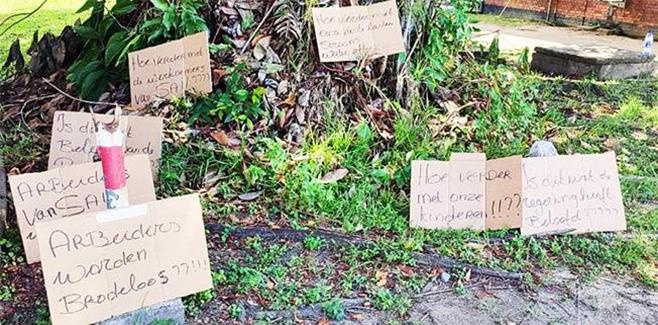 Hoe verder met
de werknemers
van SAI????
Hoe verder met
onze
Is dit
Beleid van de
ArBeiders
Van SAI
ArBeiders
worden
Brodeloos??!!!
Hoe verder
met onze
kinderen!!!??
Is dit wat de
regering heeft
Beloofd????